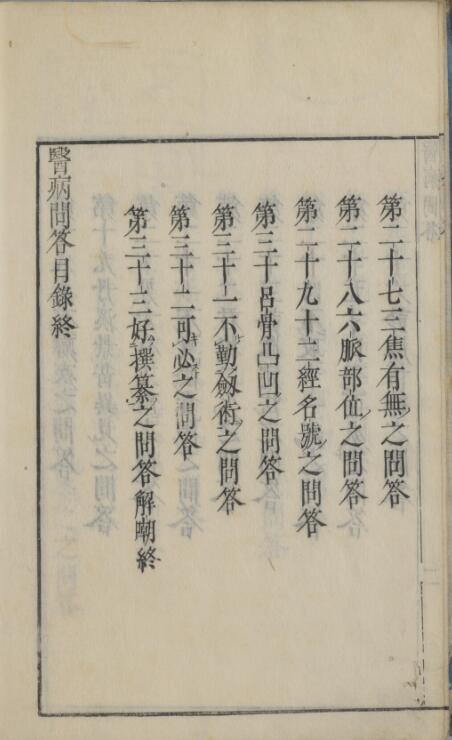 第二十七三焦有無之問答
第二十八六脈部位之問答
第二十九十二經名號之問答
第三十呂骨凸凹之問答
第三十一不勤劔術之問答
第三十二可必之問答
第三十三好撰纂之問答解嘲終
醫病問答目錄終